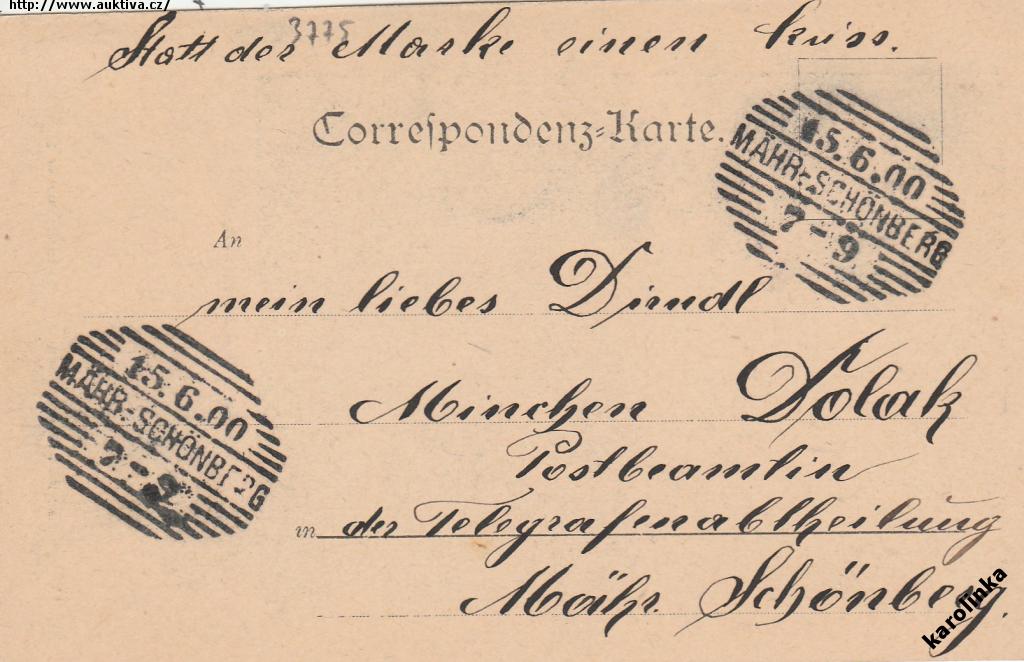 http://www.auktiva.cz/
3775
Statt der Marke einen Kuss.
Correspondenz-Karte.
15.6.00
MÄHR-SCHÖNBERG
7-9
An
mein liebes Dirndl
15.6.00
MÄHR-SCHÖNBERG
7-9
Minchen Dolak
Postbeamtin
in der Telegrafenabtheilung
Mähr. Schönberg.
karolinka